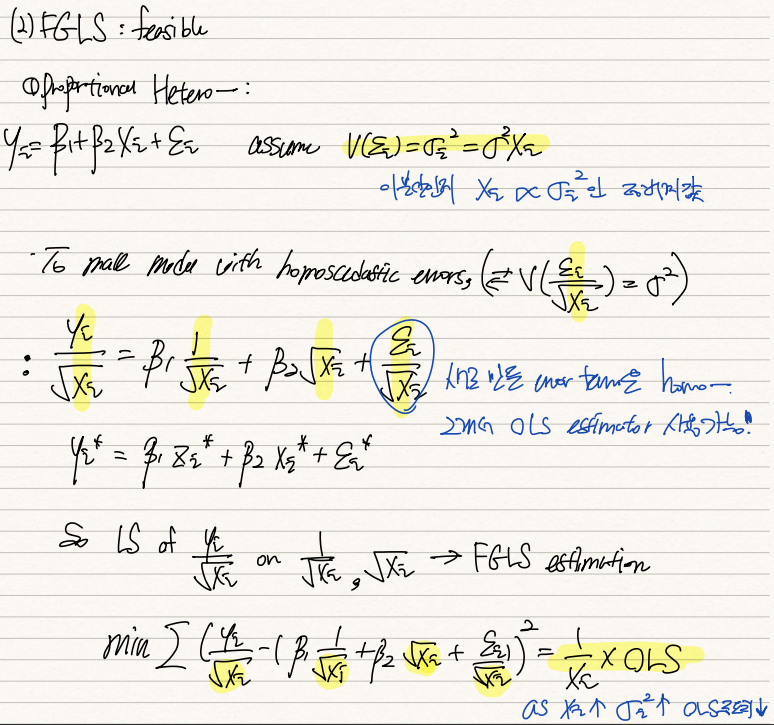 (2) FGLS : feasible
① proportional Hetero— :
Yᵢ = β₁ + β₂Xᵢ + εᵢ assume V(εᵢ) = σᵢ² = σ²Xᵢ
Xᵢ ∝ σᵢ²인
· To make model with homoscedastic errors, (⇄ V(εᵢ/√Xᵢ) = σ²)
: Yᵢ/√Xᵢ = β₁ 1/√Xᵢ + β₂√Xᵢ + εᵢ/√Xᵢ
새로 만든 error term은 homo—.
그래서 OLS estimator 사용가능!
Yᵢ* = β₁ Zᵢ* + β₂ Xᵢ* + εᵢ*
So LS of Yᵢ/√Xᵢ on 1/√Xᵢ, √Xᵢ → FGLS estimation
min ∑ (Yᵢ/√Xᵢ - (β₁ 1/√Xᵢ + β₂ √Xᵢ + εᵢ/√Xᵢ))² = 1/Xᵢ × OLS
as Xᵢ↑ σᵢ²↑ OLS ↓